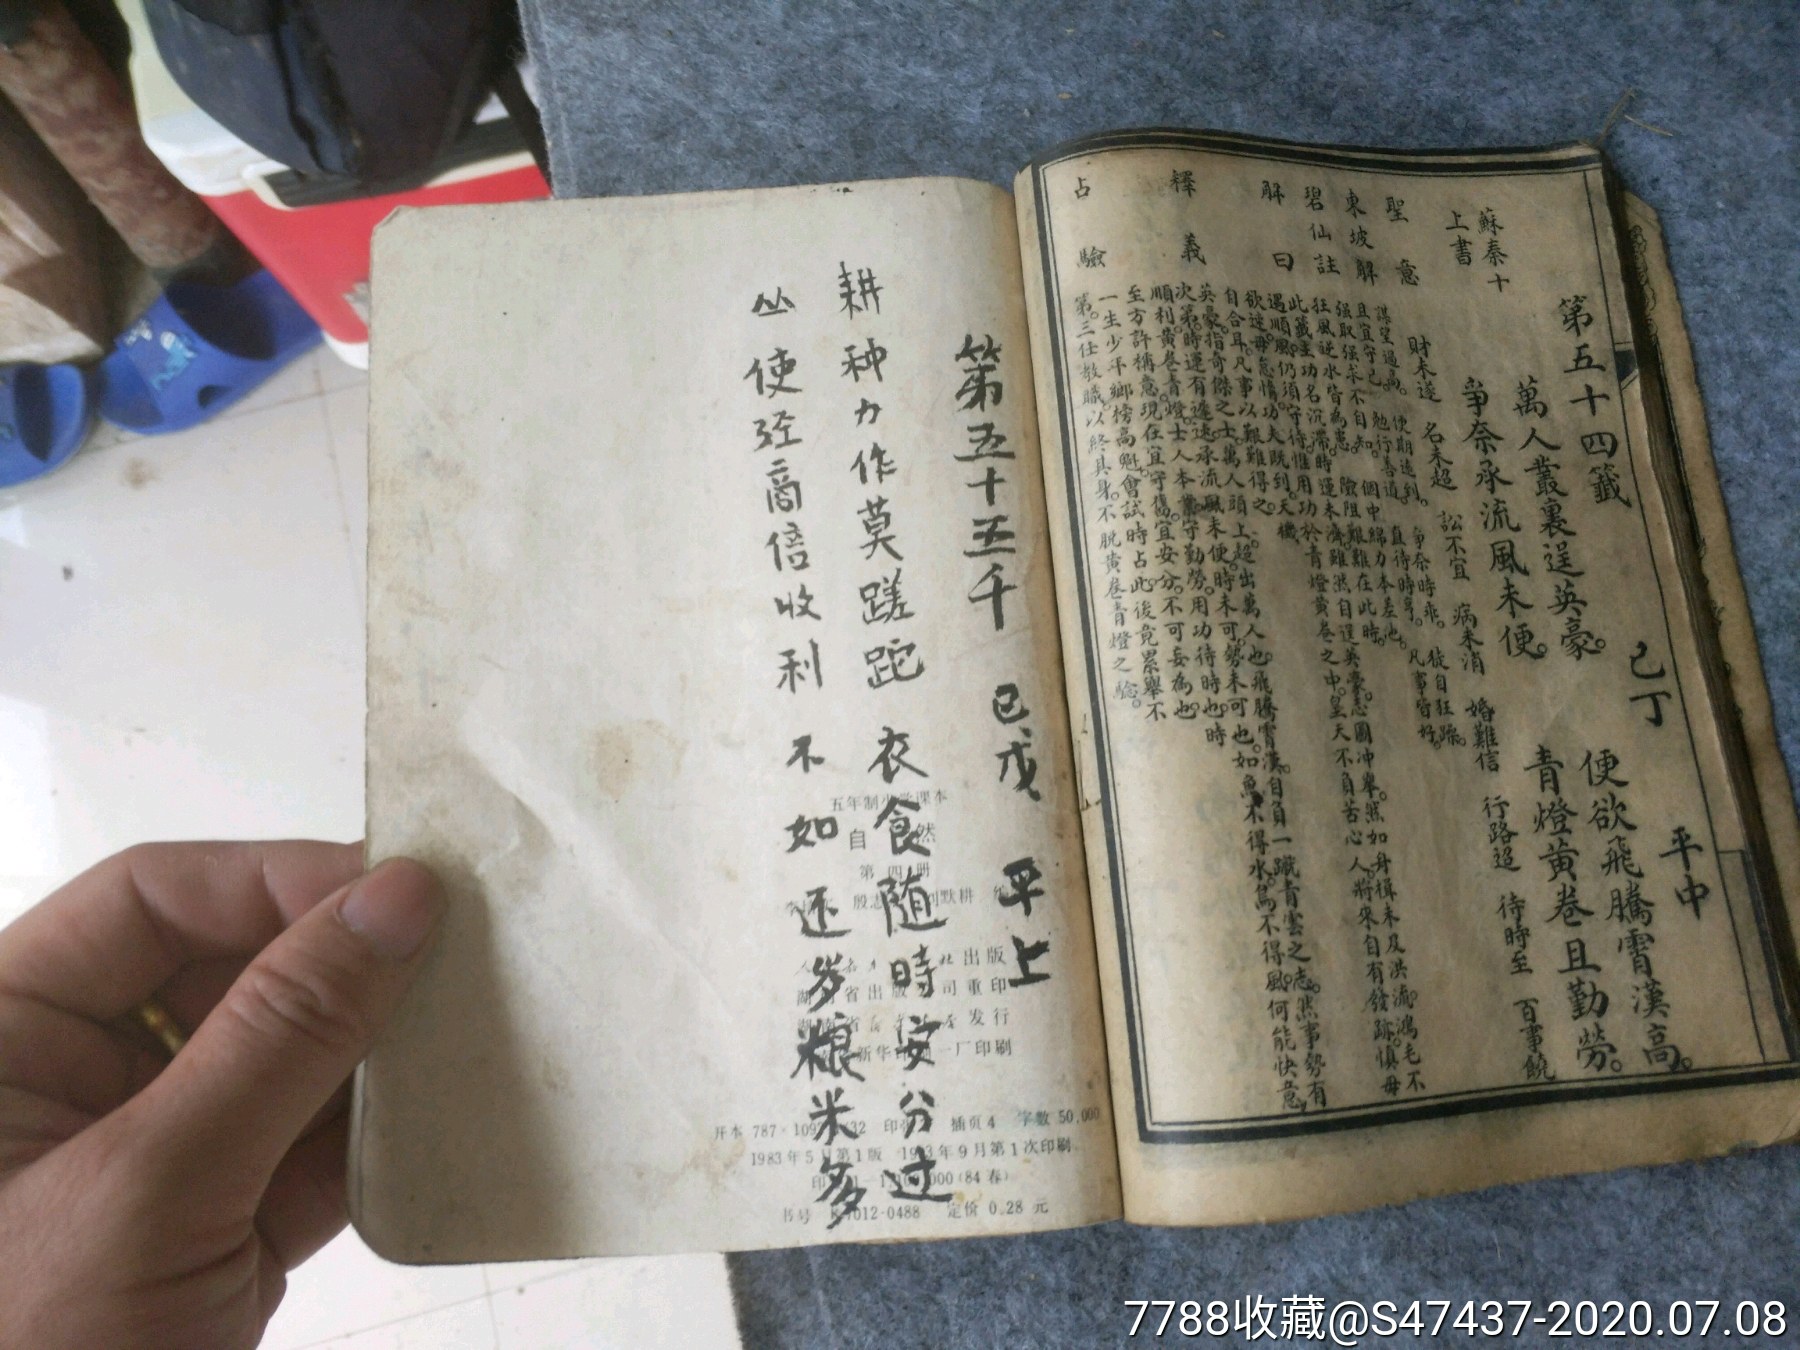 第五十四籤 己丁 平中
蘇秦十上書
萬人叢裏逞英豪。 便欲飛騰霄漢高。
爭奈承流風未便。 青燈黃卷且勤勞。
聖意
財未遂 名未超 訟不宜 病未消 婚難信 行路迢 待時至 百事饒
東坡解
謀望過高。 便期遠到。 爭奈時乖。 徒自狂躁。
且宜守己。 勉行善道。 直待時亨。 凡事皆好。
碧仙註
强取强求不自知。 個中綿力本差池。
狂風逆水皆為患。 險阻艱難在此時。
解曰
此籤主功名沉滯。時運未濟。雖然自逞英豪。志圖冲舉。然如身楫未及洪流。鴻毛不
遇順風。仍須守待。惟用功於青燈黃卷之中。皇天不負苦心人。將來自有發跡。慎毋
欲速。毋怠惰。功夫既到。天機
自合耳。凡事以艱難得之。
釋義
英豪。指奇傑之士。萬人頭上。超出萬人也。飛騰霄漢。自負一蹴青雲之志。然事勢有
次第。時運有遲速。承流風未便。時未可。勢未可也。如魚不得水。鳥不得風。何能快意。
順利。黃卷青燈。士人本業。守勤勞。用功待時也。時
至方許稱意。現在宜守舊。宜安分。不可妄為也。
占驗
一生少年鄉榜高魁。會試時占此。後竟累舉不
第。三任教職。以終其身。不脫黃卷青燈之驗。
第五十五千 己戊 平上
耕种力作莫蹉跎 衣食随時安分过
丛使经商信收利 不如还岁粮米多
五年制小学课本
自然
第四册
出版
重印
发行
印刷
开本 787×109 32 插页 4 字数 50,000
1983年5月第1版 1983年9月第1次印刷
(84春)
书号 K7012·0488 定价 0.28 元
7788收藏@S47437-2020.07.08